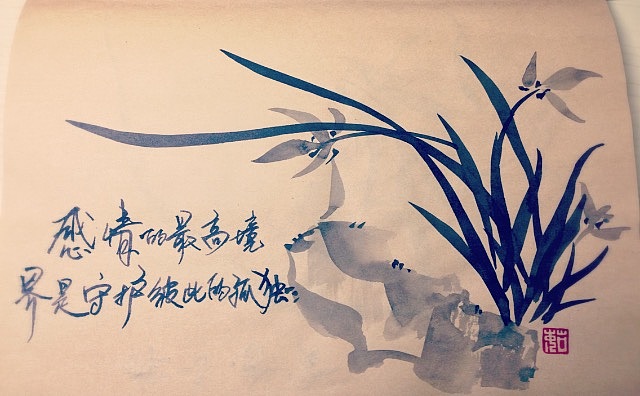 感情的最高境
界是守护彼此的孤独